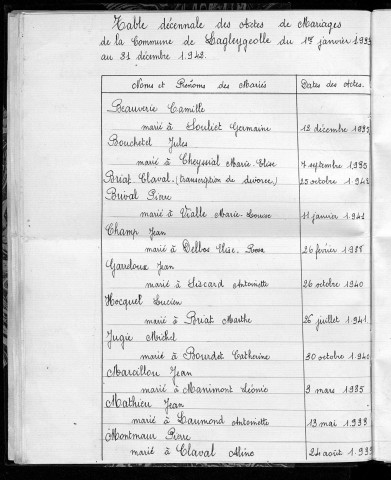 Table décennale des Actes de Mariages
de la Commune de Lagleygeolle du 1er janvier 1933
au 31 décembre 1.942.
Noms et Prénoms des Mariés Dates des Actes.
Beauverie Camille
marié à Souliet Germaine 12 décembre
Bouchetel Jules
marié à Cheyssial Marie-Elise 7 septembre 1935
Briat-Claval (transcription de divorce) 23 octobre 1.942
Brival Pierre
marié à Vialle Marie-Louise 11 janvier 1941
Champ Jean
marié à Delbos Elise-Rosa 26 février 1938
Gaudoux Jean
marié à Siscard Antoinette 26 octobre 1940
Hocquel Lucien
marié à Briat Marthe 26 juillet 1.941
Jugie Michel
marié à Bourdet Catherine 30 octobre 1.940
Marcillou Jean
marié à Manimont Léonie 3 mars 1935
Mathieu Jean
marié à Laumond Antoinette 13 mai 1.933
Montmaur Pierre
marié à Claval 24 août